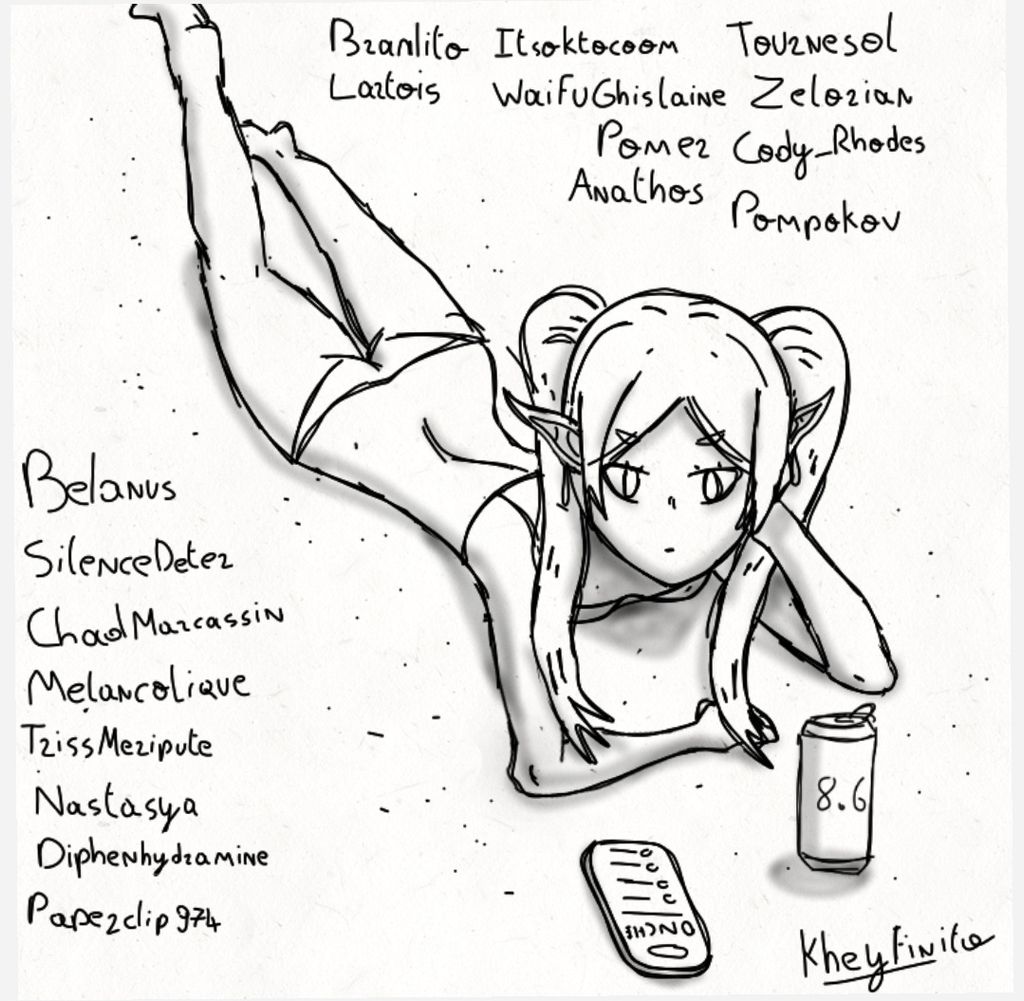 Branlito Itsoktocoom Tournesol
Lartois WaiFuGhislaine Zelorian
Pomer Cody_Rhodes
Anathos
Pompokov
Belanus
SilenceDeter
ChadMarcassin
Melancolique
TrissMeripute
Nastasya
Diphenhydramine
Paperclip974
8.6
ONCHE
KheyFinito